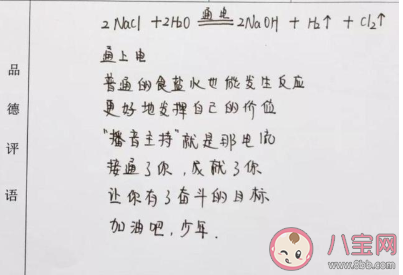 品德评语
2NaCl + 2H₂O 通电 2NaOH + H₂↑ + Cl₂↑
通上电
普通的食盐水也能发生反应
更好地发挥自己的价值
"播音主持"就是那电流
接通了你,成就了你
让你有了奋斗的目标
加油吧,少年.
八宝网
www.8bb.com